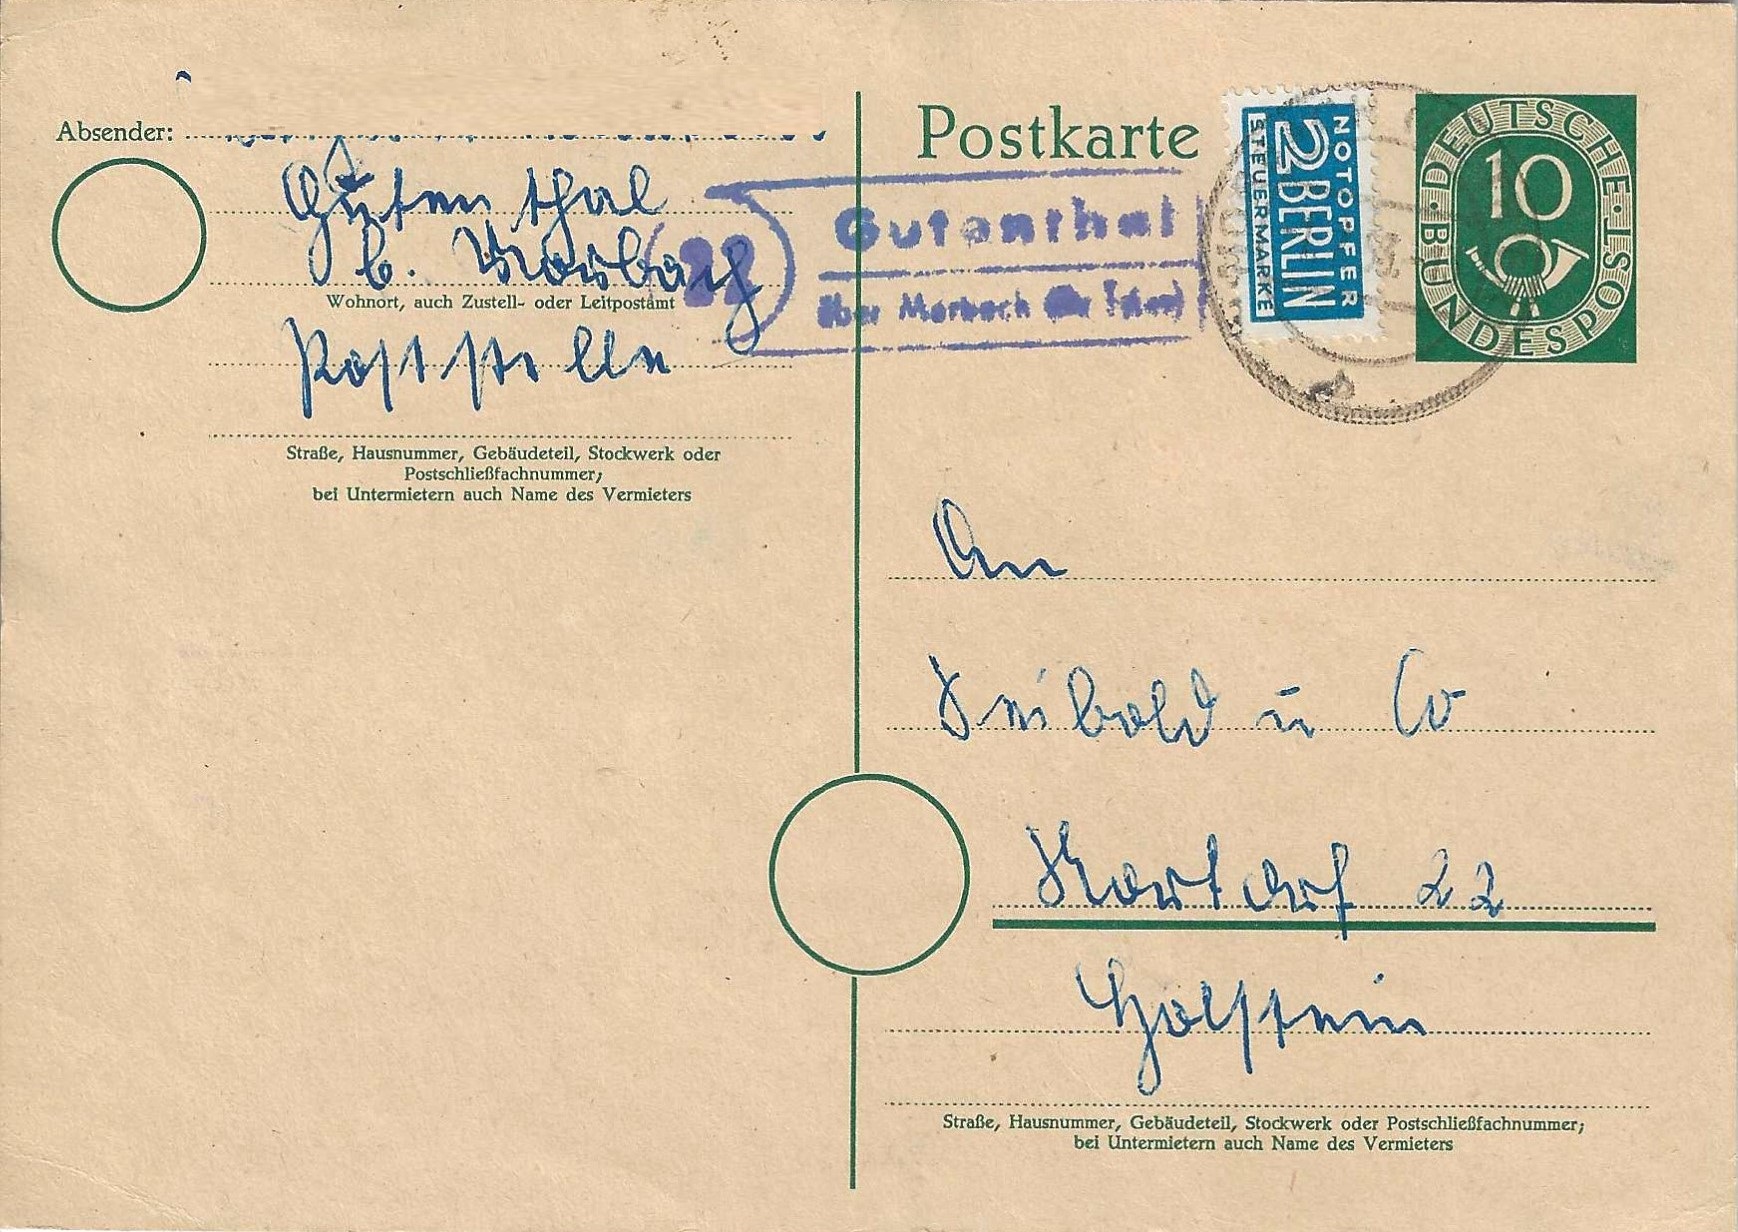 Absender:
Gutenthal
b. Morbach
Wohnort, auch Zustell- oder Leitpostamt
Poststelle
Straße, Hausnummer, Gebäudeteil, Stockwerk oder
Postschließfachnummer;
bei Untermietern auch Name des Vermieters
Postkarte
22
Gutenthal
über Morbach
NOTOPFER
2 BERLIN
STEUERMARKE
DEUTSCHE BUNDESPOST
10
An
Seibold u Co
Nortorf 22
Holstein
Straße, Hausnummer, Gebäudeteil, Stockwerk oder Postschließfachnummer;
bei Untermietern auch Name des Vermieters